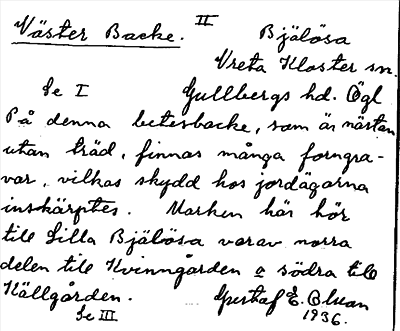 II
Väster Backe. Bjälösa
Vreta Kloster sn.
Se I Gullbergs hd. Ögl
På denna betesbacke, som är nästan
utan träd, finnas många forngra-
var, vilkas skydd hos jordägarna
inskärptes. Marken här hör
till Lilla Bjälösa varav norra
delen till Kvinngården o södra till
Källgården. Gustaf E. Bluan
Se III 1936.